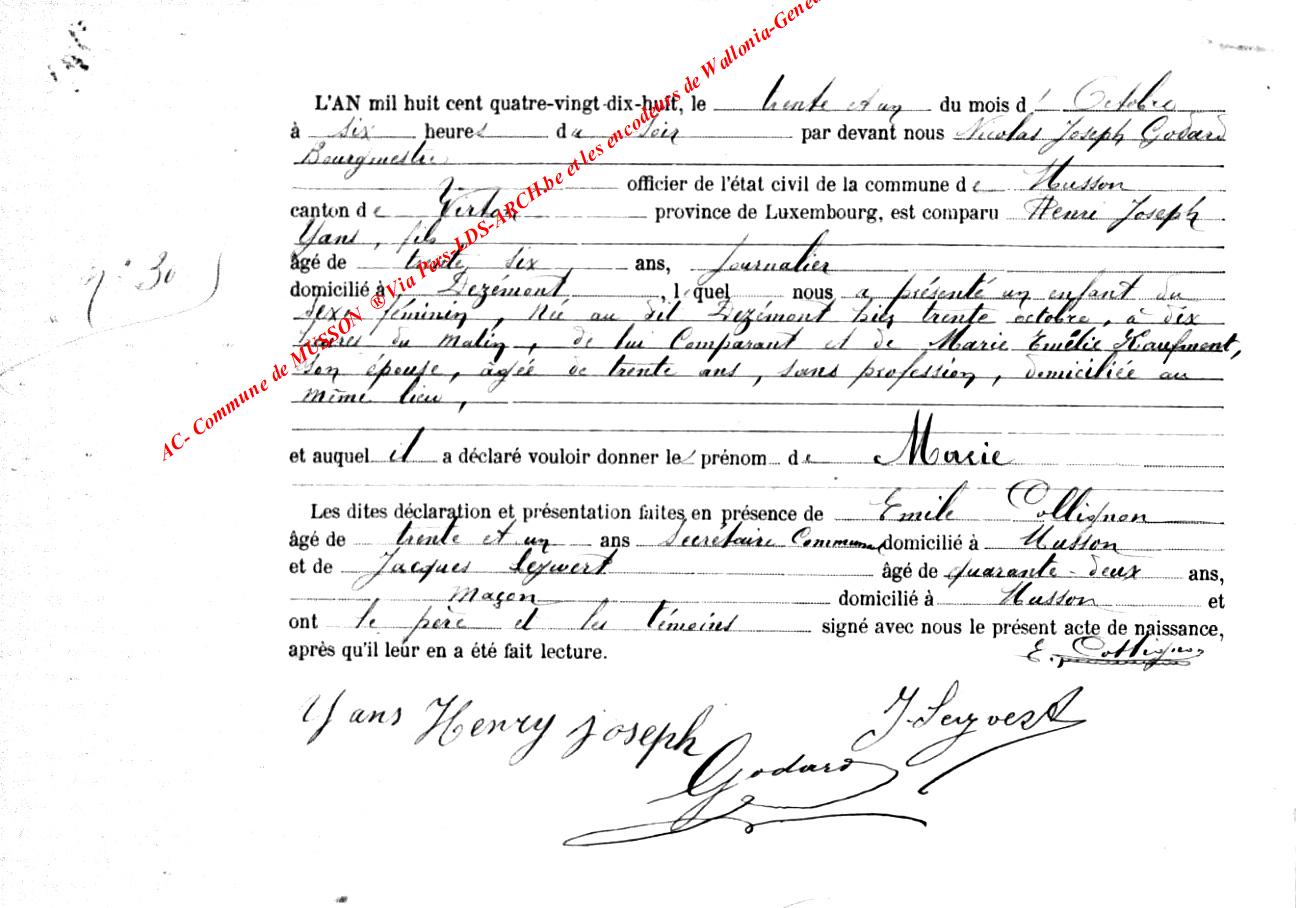 AC- Commune de MUSSON ®Via Pers-LDS-ARCH.be et les encodeurs de Wallonia-Genea
L'AN mil huit cent quatre-vingt-dix-huit, le trente et un du mois d' Octobre
à six heures du soir par devant nous Nicolas Joseph Godard
Bourgmestre
officier de l'état civil de la commune de Musson
canton de Virton province de Luxembourg, est comparu Henri Joseph
Yans, fils
âgé de trente six ans, journalier
domicilié à Dezémont, lequel nous a présenté un enfant du
sexe féminin, née au dit Dezémont hier trente octobre, à dix
heures du matin, de lui Comparant et de Marie Emélie Kaufment,
son épouse, agée de trente ans, sans profession, domiciliée au
même lieu,
N° 30
et auquel il a déclaré vouloir donner les prénom de Marie
Les dites déclaration et présentation faites en présence de Emile Collignon
âgé de trente et un ans Secrétaire Communal domicilié à Musson
et de Jacques âgé de quarante-deux ans,
maçon domicilié à Musson et
ont le père et les témoins signé avec nous le présent acte de naissance,
après qu'il leur en a été fait lecture. E. Collignon
Yans Henry joseph
Godard